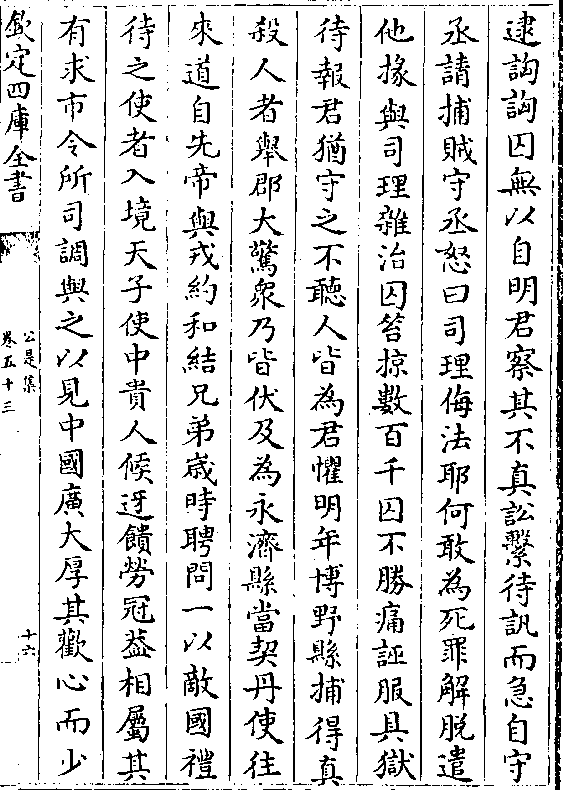 逮訽訽囚無以自明君察其不真訟繫待訊而急自守
丞請捕賊守丞怒曰司理侮法耶何敢為死罪解脱遣
他掾與司理雜治囚笞掠數百千囚不勝痛誣服具獄
待報君猶守之不聽人皆為君懼明年博野縣捕得真
殺人者舉郡大驚衆乃皆伏及為永濟縣當契丹使往
來道自先帝與戎約和結兄弟歲時聘問一以敵國禮
待之使者入境天子使中貴人候迓饋勞冠葢相屬其
有求市令所司調與之以見中國廣大厚其歡心而少
欽定四庫全書
公是集
卷五十三
十六